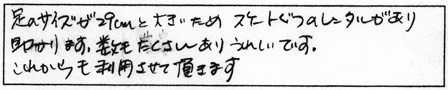 足のサイズが29cmと大きいため スケートぐつのレンタルがあり
助かります。数もたくさんありうれしいです。
これからも利用させて頂きます